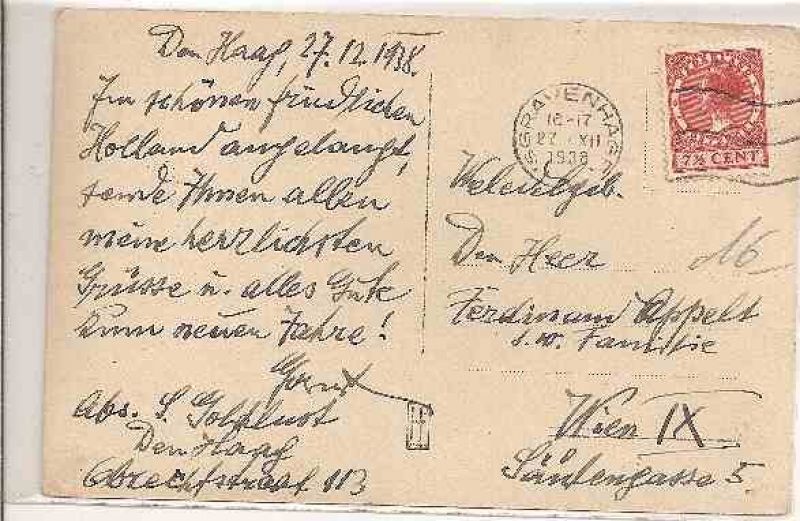 Den Haag, 27.12.1938.
Im schönen friedlichen
Holland angelangt,
sende Ihnen allen
meine herzlichsten
Grüsse u. alles Gute
zum neuen Jahre!
Abs. S. Goldlust
Den Haag
Obrechtstraat 113
'S GRAVENHAGE
16-17
27 XII
1938
7½ CENT
Den Heer
16
Ferdinand Appelt
s. w. Familie
Wien IX
Säulengasse 5.